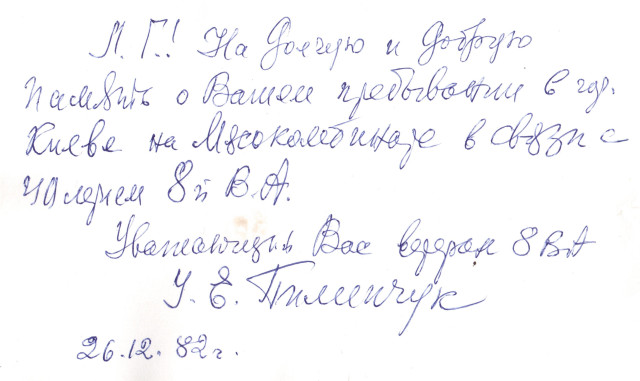 Л. Г.! На Долгую и Добрую
память о Вашем пребывании в гор.
Киеве на Мясокомбинате в связи с
40 летием 8й В.А.
Уважающий Вас ветеран 8 ВА
У. Е. Пилипчук
26.12.82 г.